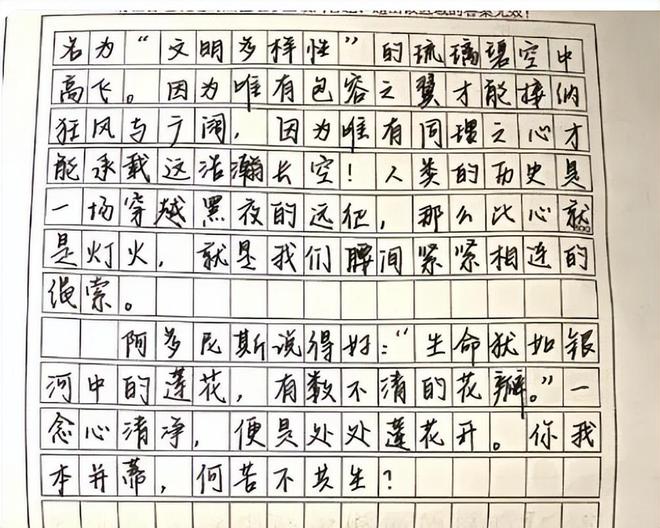 名为“文明多样性”的琉璃碧空中
高飞。因为唯有包容之翼才能接纳
狂风与广阔，因为唯有同理之心才
能承载这浩瀚长空！人类的历史是
一场穿越黑夜的远征，那么比心就
是灯火，就是我们腰间紧紧相连的
绳索。
阿多尼斯说得好：“生命犹如银
河中的莲花，有数不清的花瓣。”一
念心清净，便是处处莲花开。你我
本并蒂，何苦不共生？